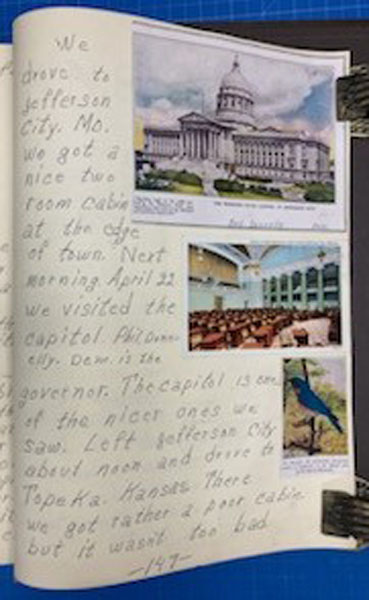 We
drove to
Jefferson
City, Mo.
We got a
nice two
room cabin
at the edge
of town. Next
morning April 22
we visited the
capitol. Phil Donn-
elly. Dem. is the
governor. The capitol is one
of the nicer ones we
saw. Left Jefferson City
about noon and drove to
Topeka. Kansas There
we got rather a poor cabin
but it wasn't too bad
-147-